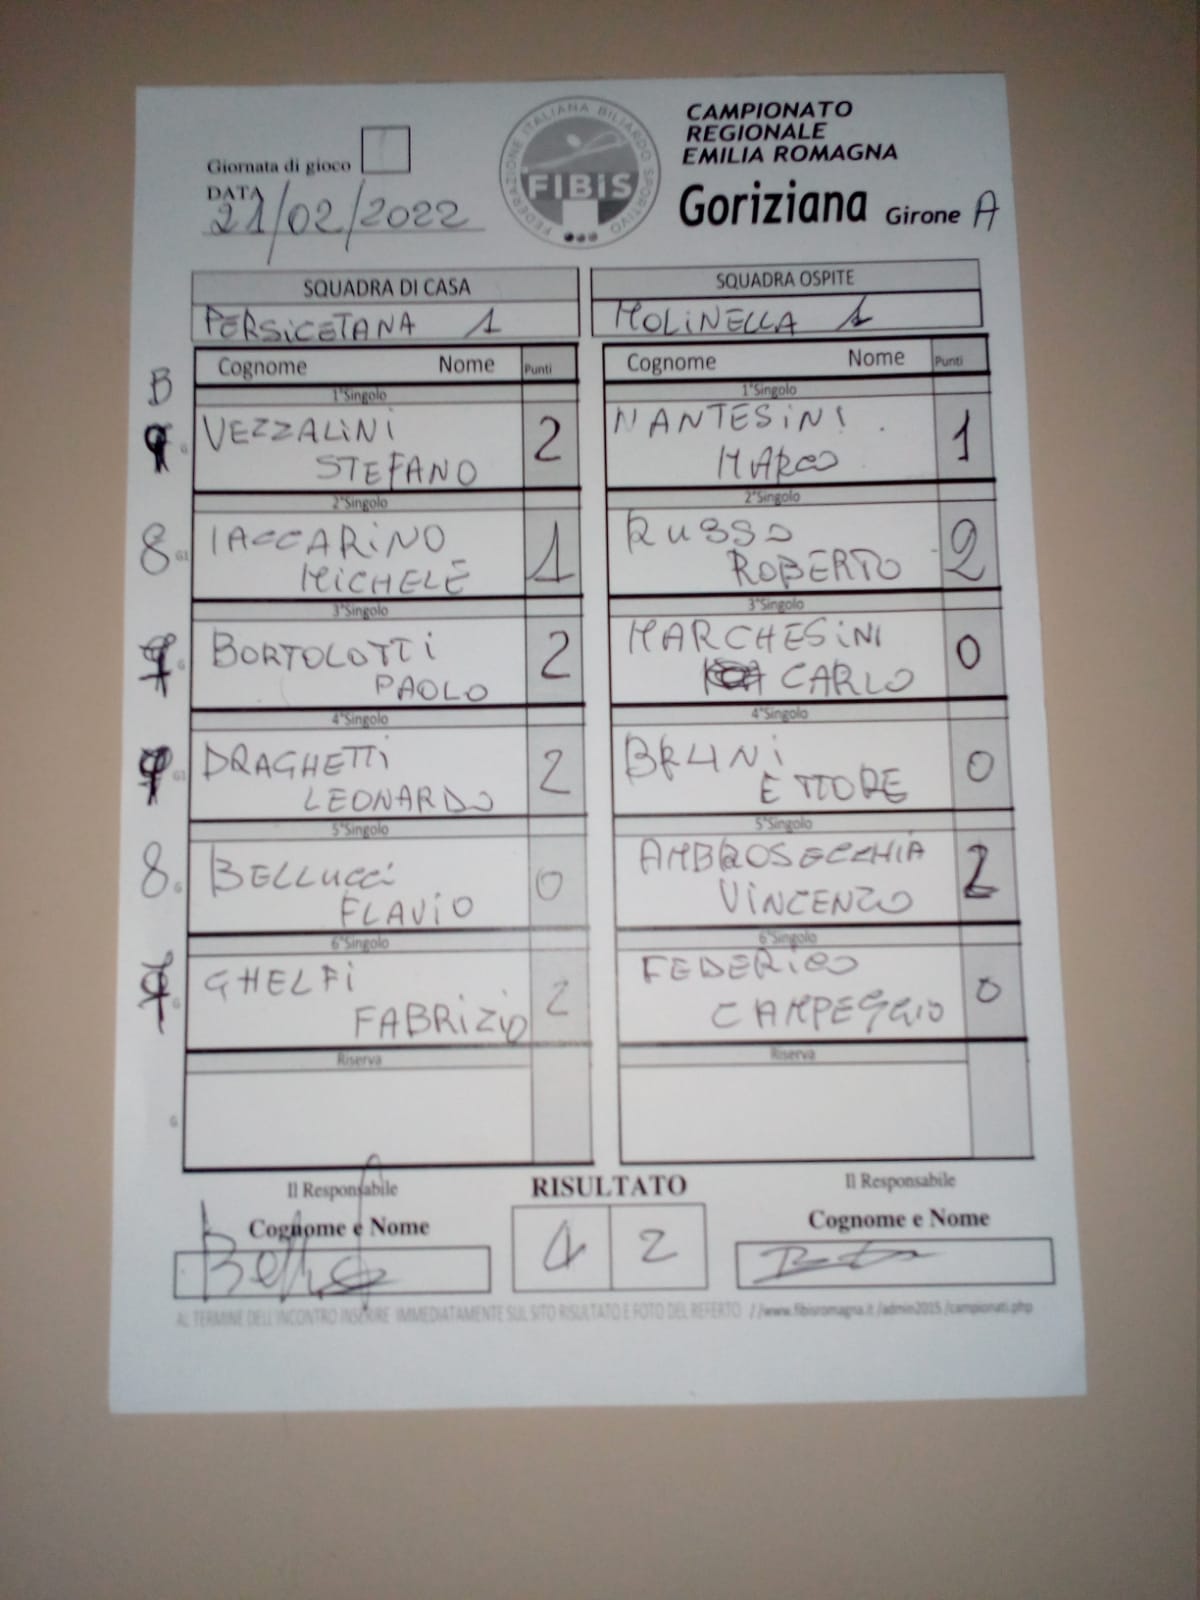 Giornata di gioco
DATA
21/02/2022
FEDERAZIONE ITALIANA BILIARDO SPORTIVO
FIBiS
CAMPIONATO
REGIONALE
EMILIA ROMAGNA
Goriziana Girone A
SQUADRA DI CASA
PERSICETANA 1
SQUADRA OSPITE
MOLINELLA 1
B
Cognome Nome Punti
Cognome Nome Punti
1°Singolo
1°Singolo
G
VEZZALINI
STEFANO
2
NANTESINI
MARCO
1
2°Singolo
2°Singolo
8 G1
IACCARINO
MICHELE
1
RUSSO
ROBERTO
2
3°Singolo
3°Singolo
G
BORTOLOTTI
PAOLO
2
MARCHESINI
CARLO
0
4°Singolo
4°Singolo
G1
DRAGHETTI
LEONARDO
2
BRUNI
ETTORE
0
5°Singolo
5°Singolo
8 G
BELLUCCI
FLAVIO
0
AMBROSECCHIA
VINCENZO
2
6°Singolo
6°Singolo
G
GHELFI
FABRIZIO
2
FEDERICO
CAMPEGGIO
0
Riserva
Riserva
G
Il Responsabile
Cognome e Nome
RISULTATO
4 2
Il Responsabile
Cognome e Nome
AL TERMINE DELL'INCONTRO INSERIRE IMMEDIATAMENTE SUL SITO RISULTATO E FOTO DEL REFERTO //www.fibisromagna.it/admin2015/campionati.php